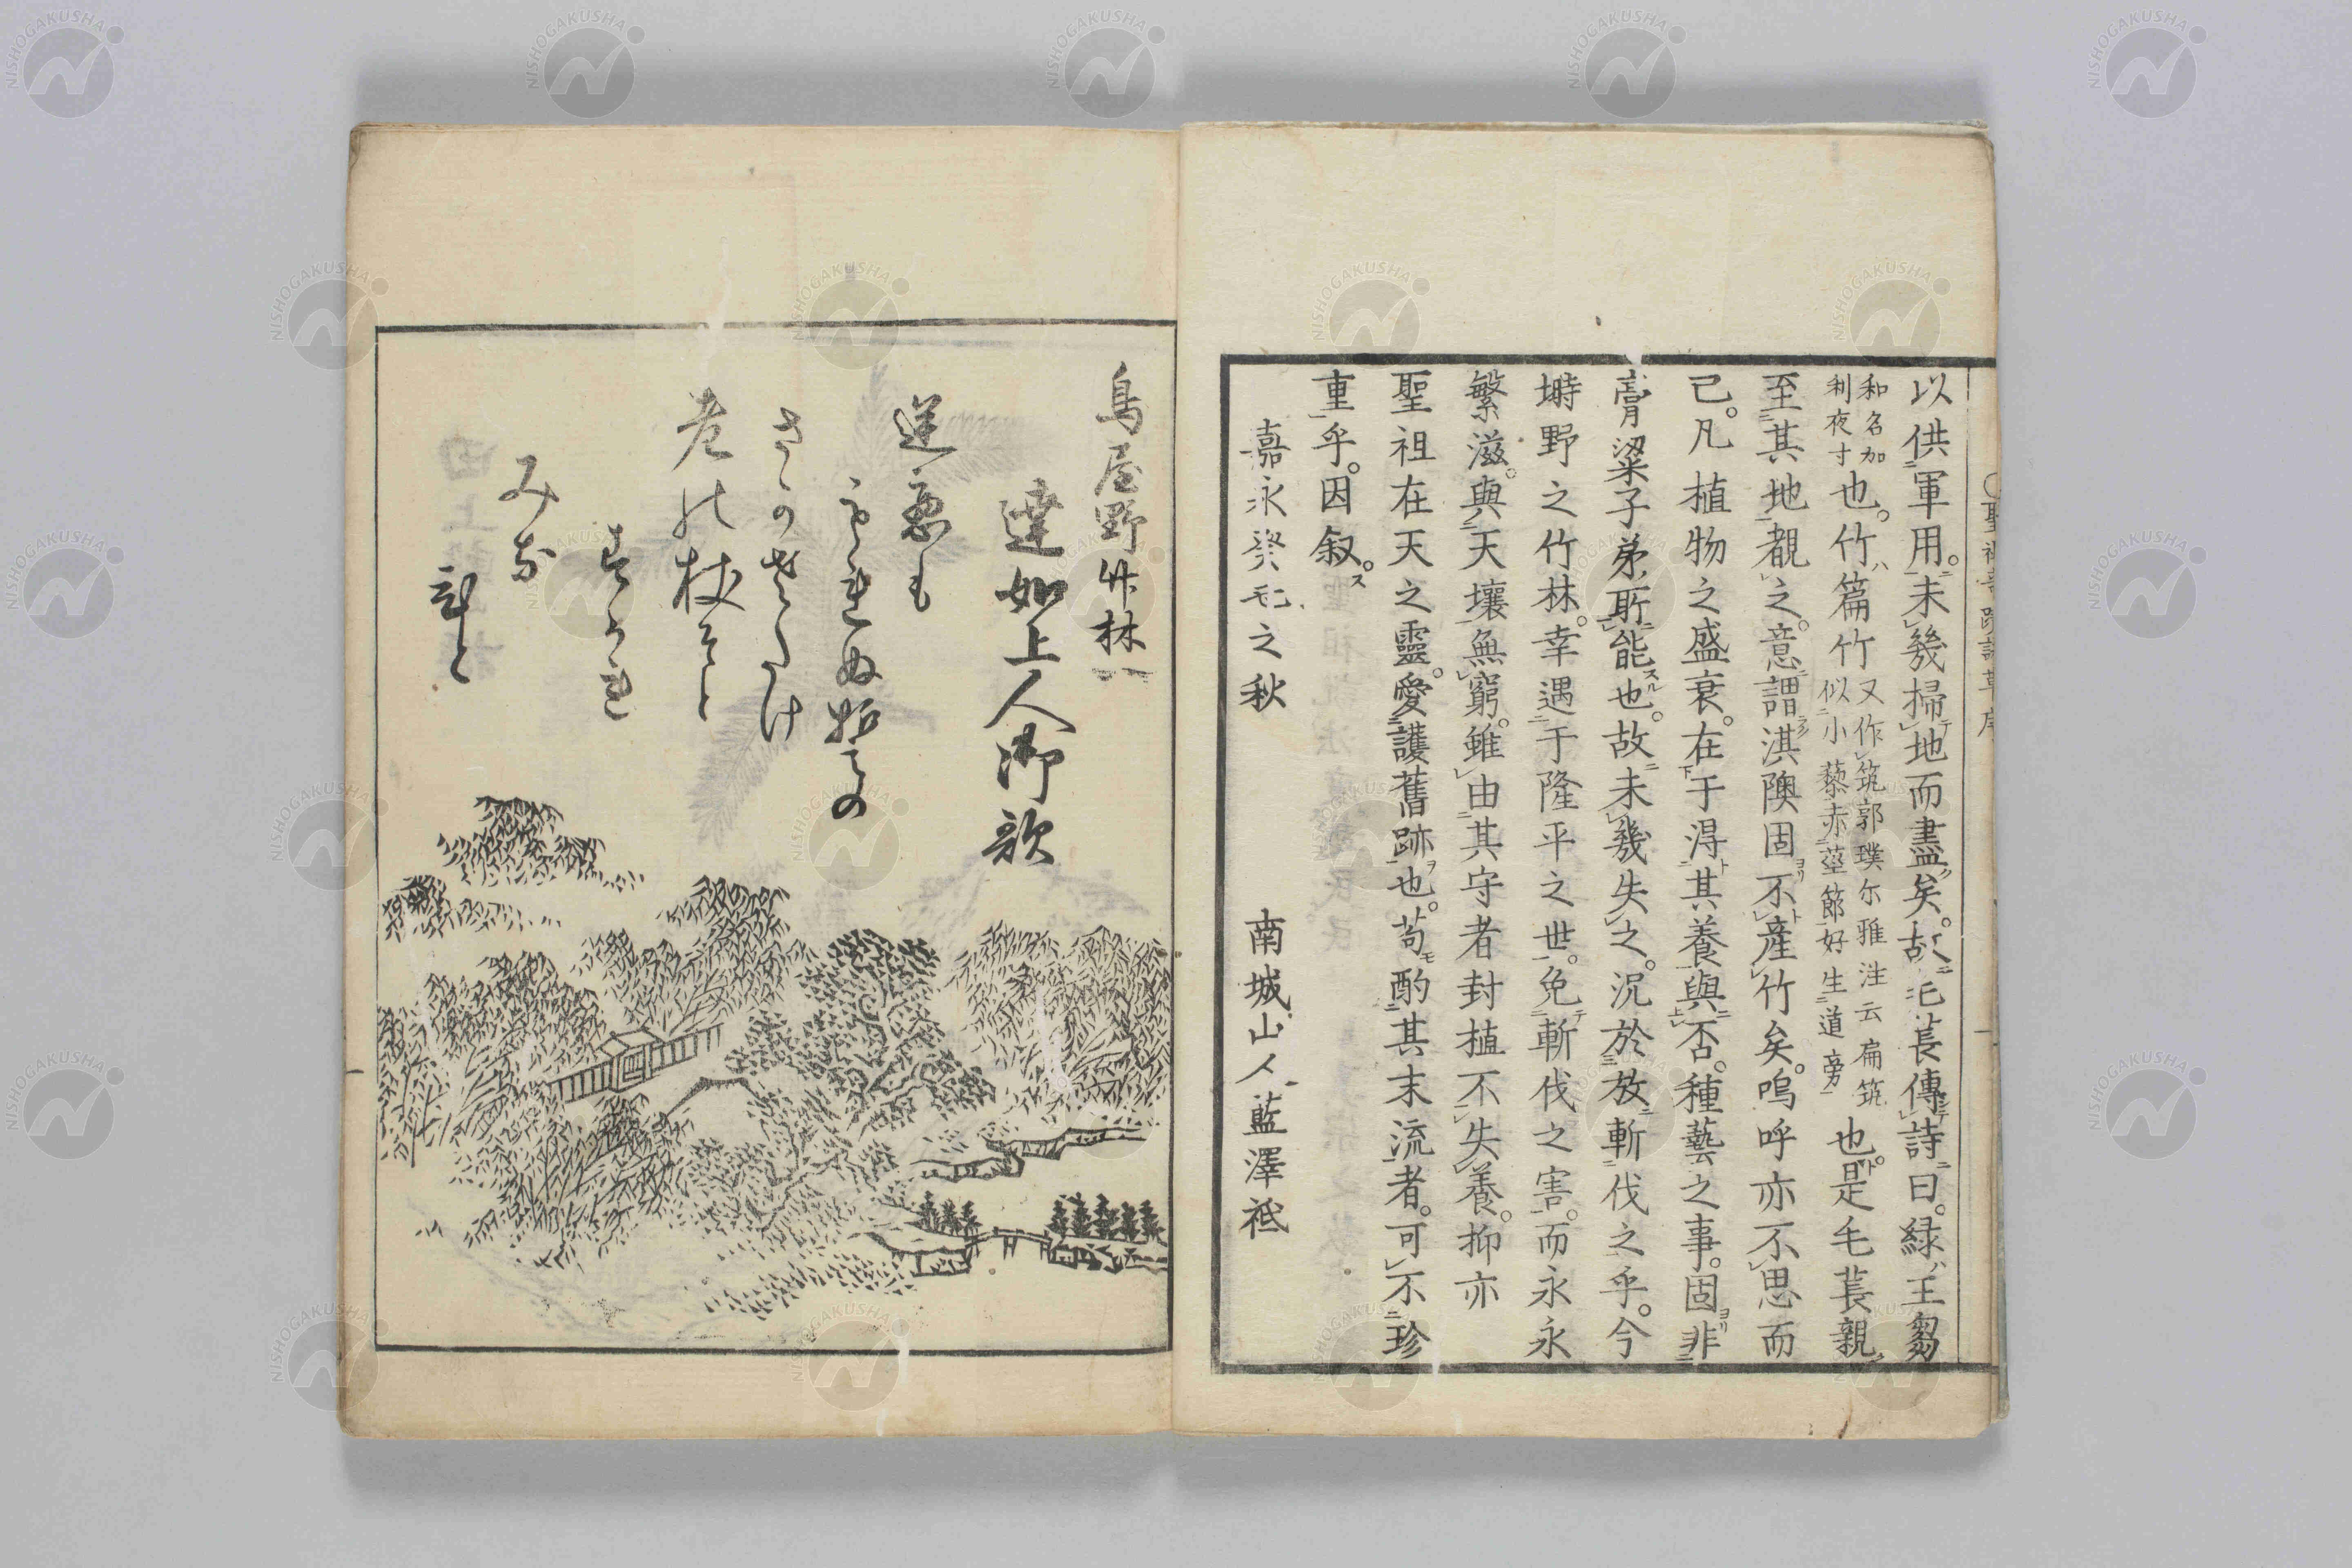 以供軍用。未幾掃地而盡矣。故毛萇傳詩曰。緑王芻
和名加利夜寸也。竹篇竹又作筑郭璞尓雅注云扁筑似小藜赤莖節好生道旁也。是毛萇親
至其地覩之。意謂淇隩固不産竹矣。嗚呼亦不思而
已。凡植物之盛衰。在于得其養與否。種藝之事。固非
膏粱子弟所能也。故未幾失之。況於放斬伐之乎。今
塒野之竹林。幸遇于隆平之世。免斬伐之害。而永永
繁滋。與天壤無窮。雖由其守者封植不失養。抑亦
聖祖在天之靈。愛護舊跡也。苟酌其末流者。可不珍
重乎。因叙。
嘉永癸丑之秋 南城山人藍澤祗
鳥屋野竹林
達如上人御歌
逆悪も
さゝのさくたけ
老の杖そと
みな
NISHOGAKUSHA